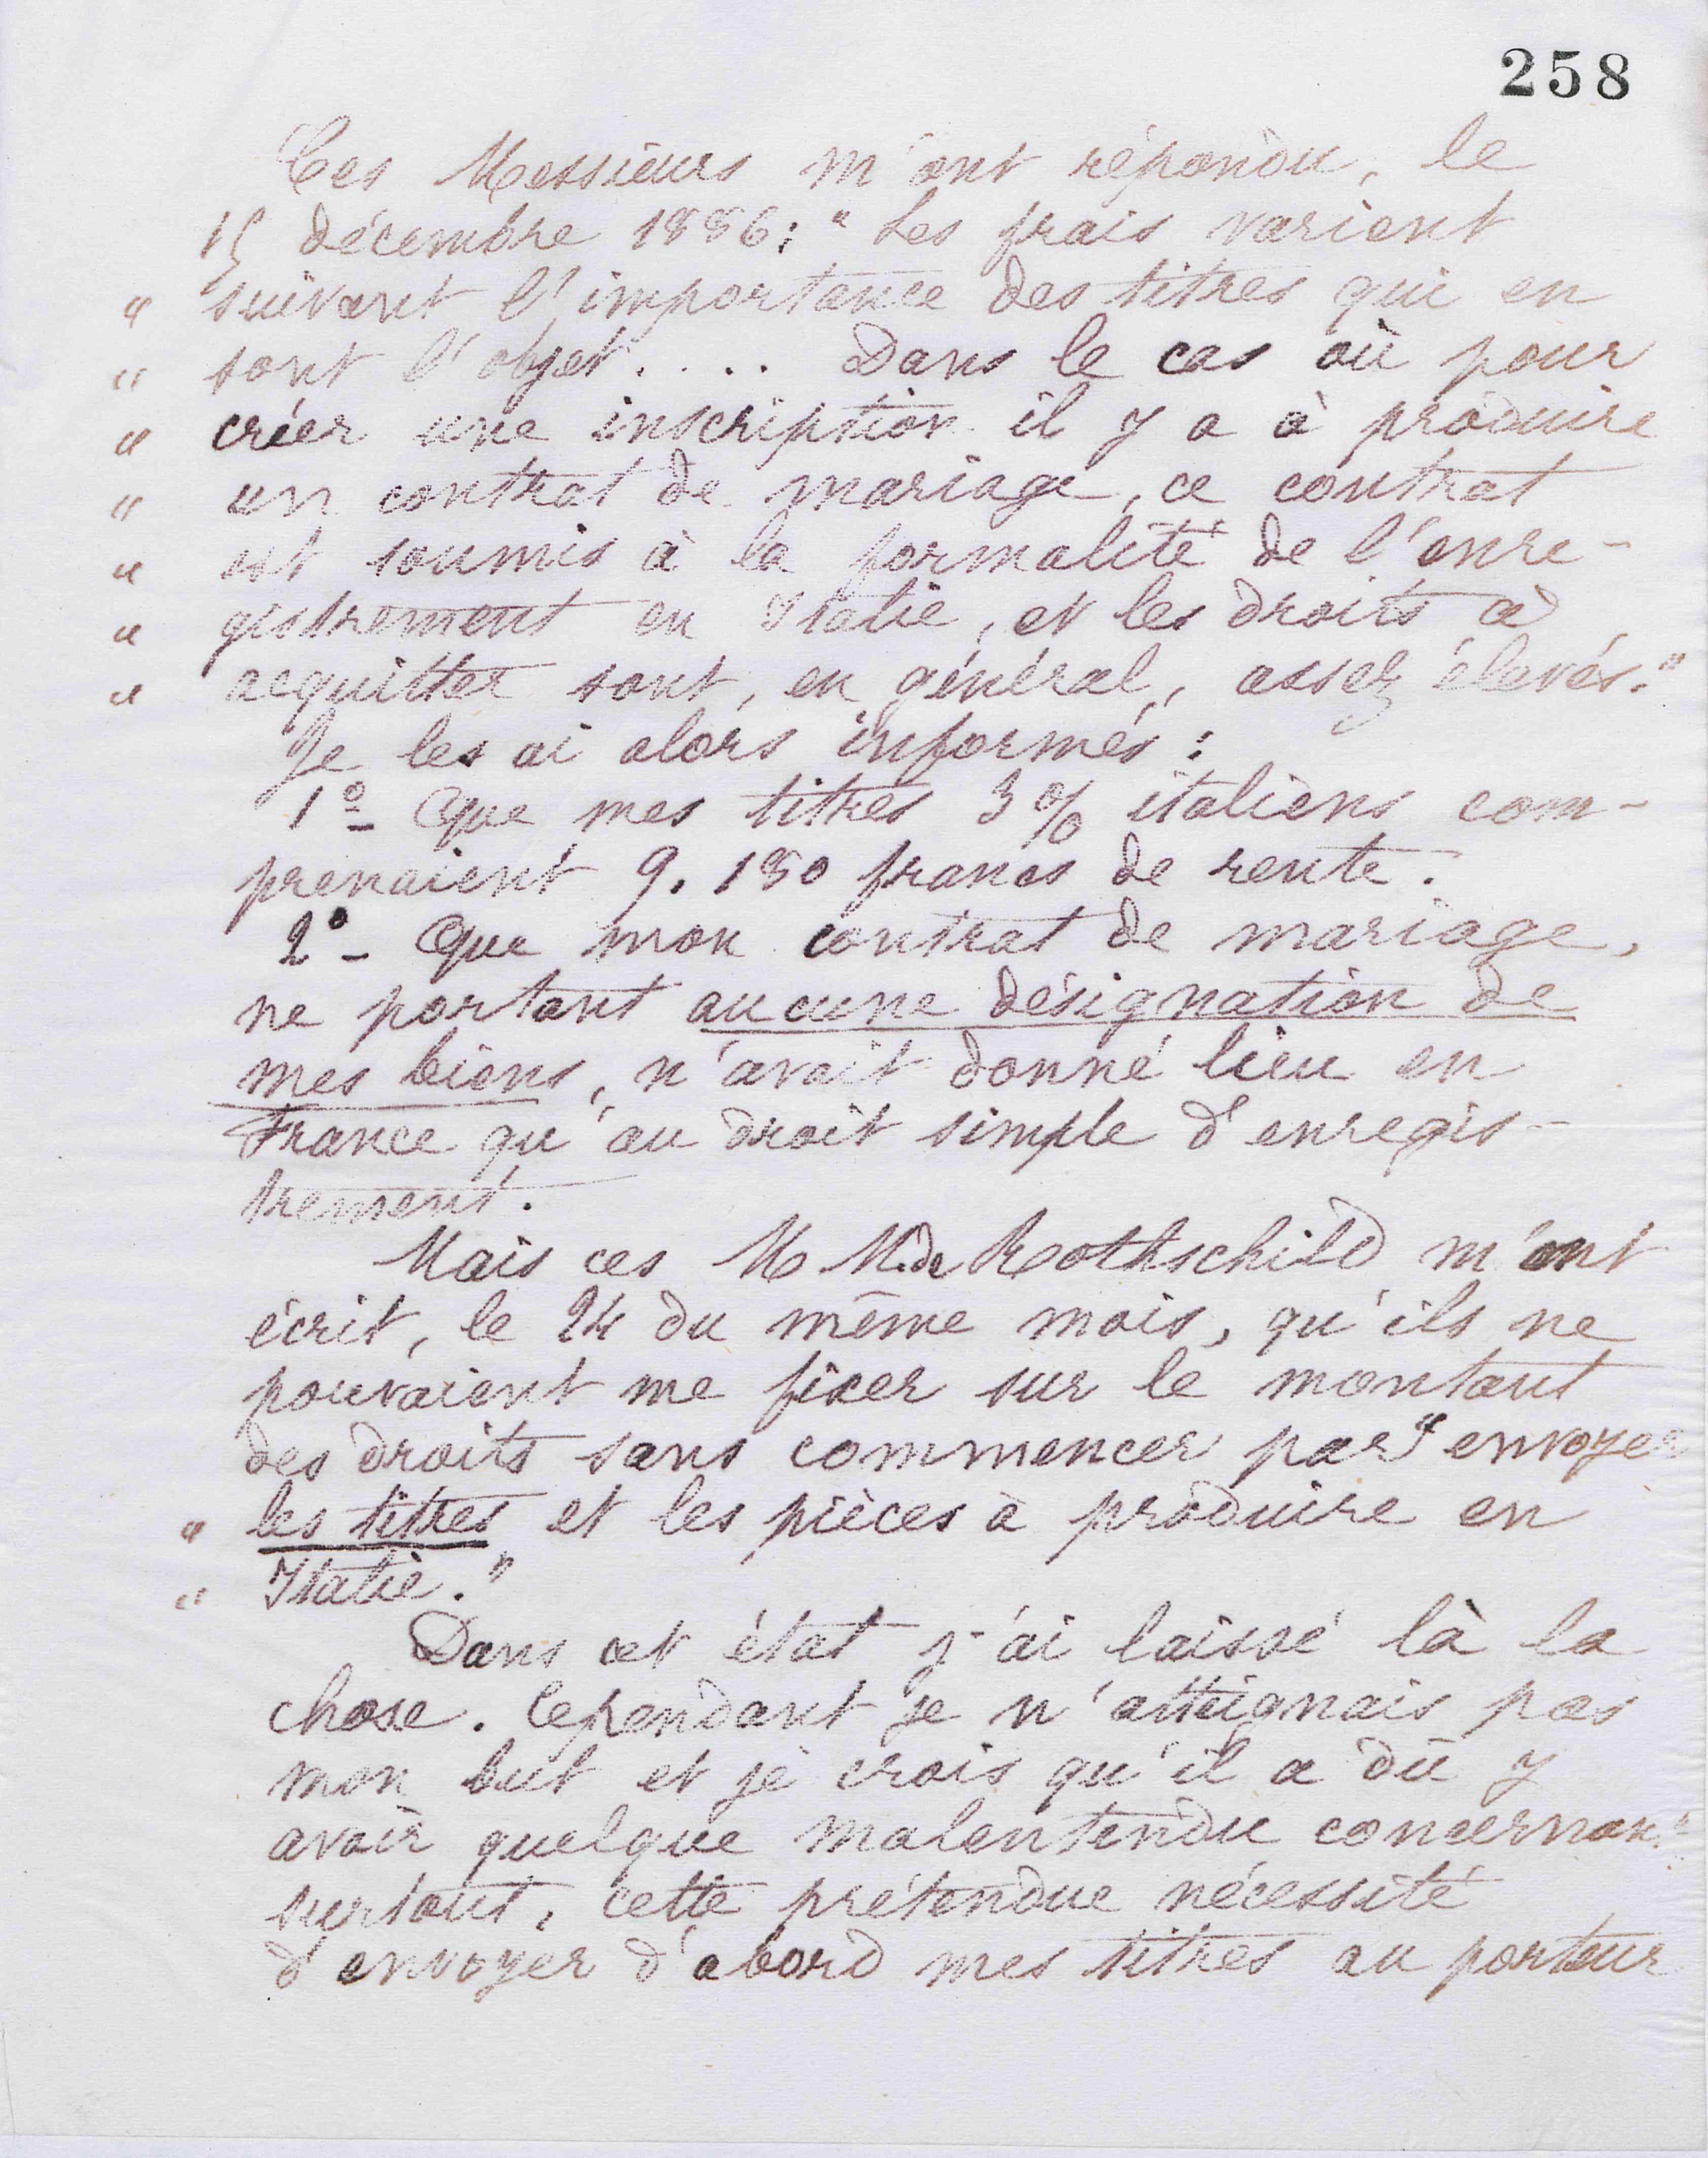 258
Ces Messieurs m'ont répondu, le
15 décembre 1886 : " Les frais varient
" suivant l'importance des titres qui en
" sont l'objet .... Dans le cas où pour
" créer une inscription il y a à produire
" un contrat de mariage, ce contrat
" est soumis à la formalité de l'enre-
" gistrement en Italie, et les droits à
" acquitter sont, en général, assez élevés."
Je les ai alors informés :
1º- Que mes titres 3% italiens com-
prenaient 9.180 francs de rente.
2º- Que mon contrat de mariage,
ne portant aucune désignation de
mes biens, n'avait donné lieu en
France qu'au droit simple d'enregis-
trement.
Mais ces MM. de Rothschild m'ont
écrit, le 24 du même mois, qu'ils ne
pouvaient me fixer sur le montant
des droits sans commencer par " envoyer
" les titres et les pièces à produire en
" Italie."
Dans cet état j'ai laissé là la
chose. Cependant je n'atteignais pas
mon but et je crois qu'il a dû y
avoir quelque malentendu concernant
surtout, cette prétendue nécessité
d'envoyer d'abord mes titres au porteur